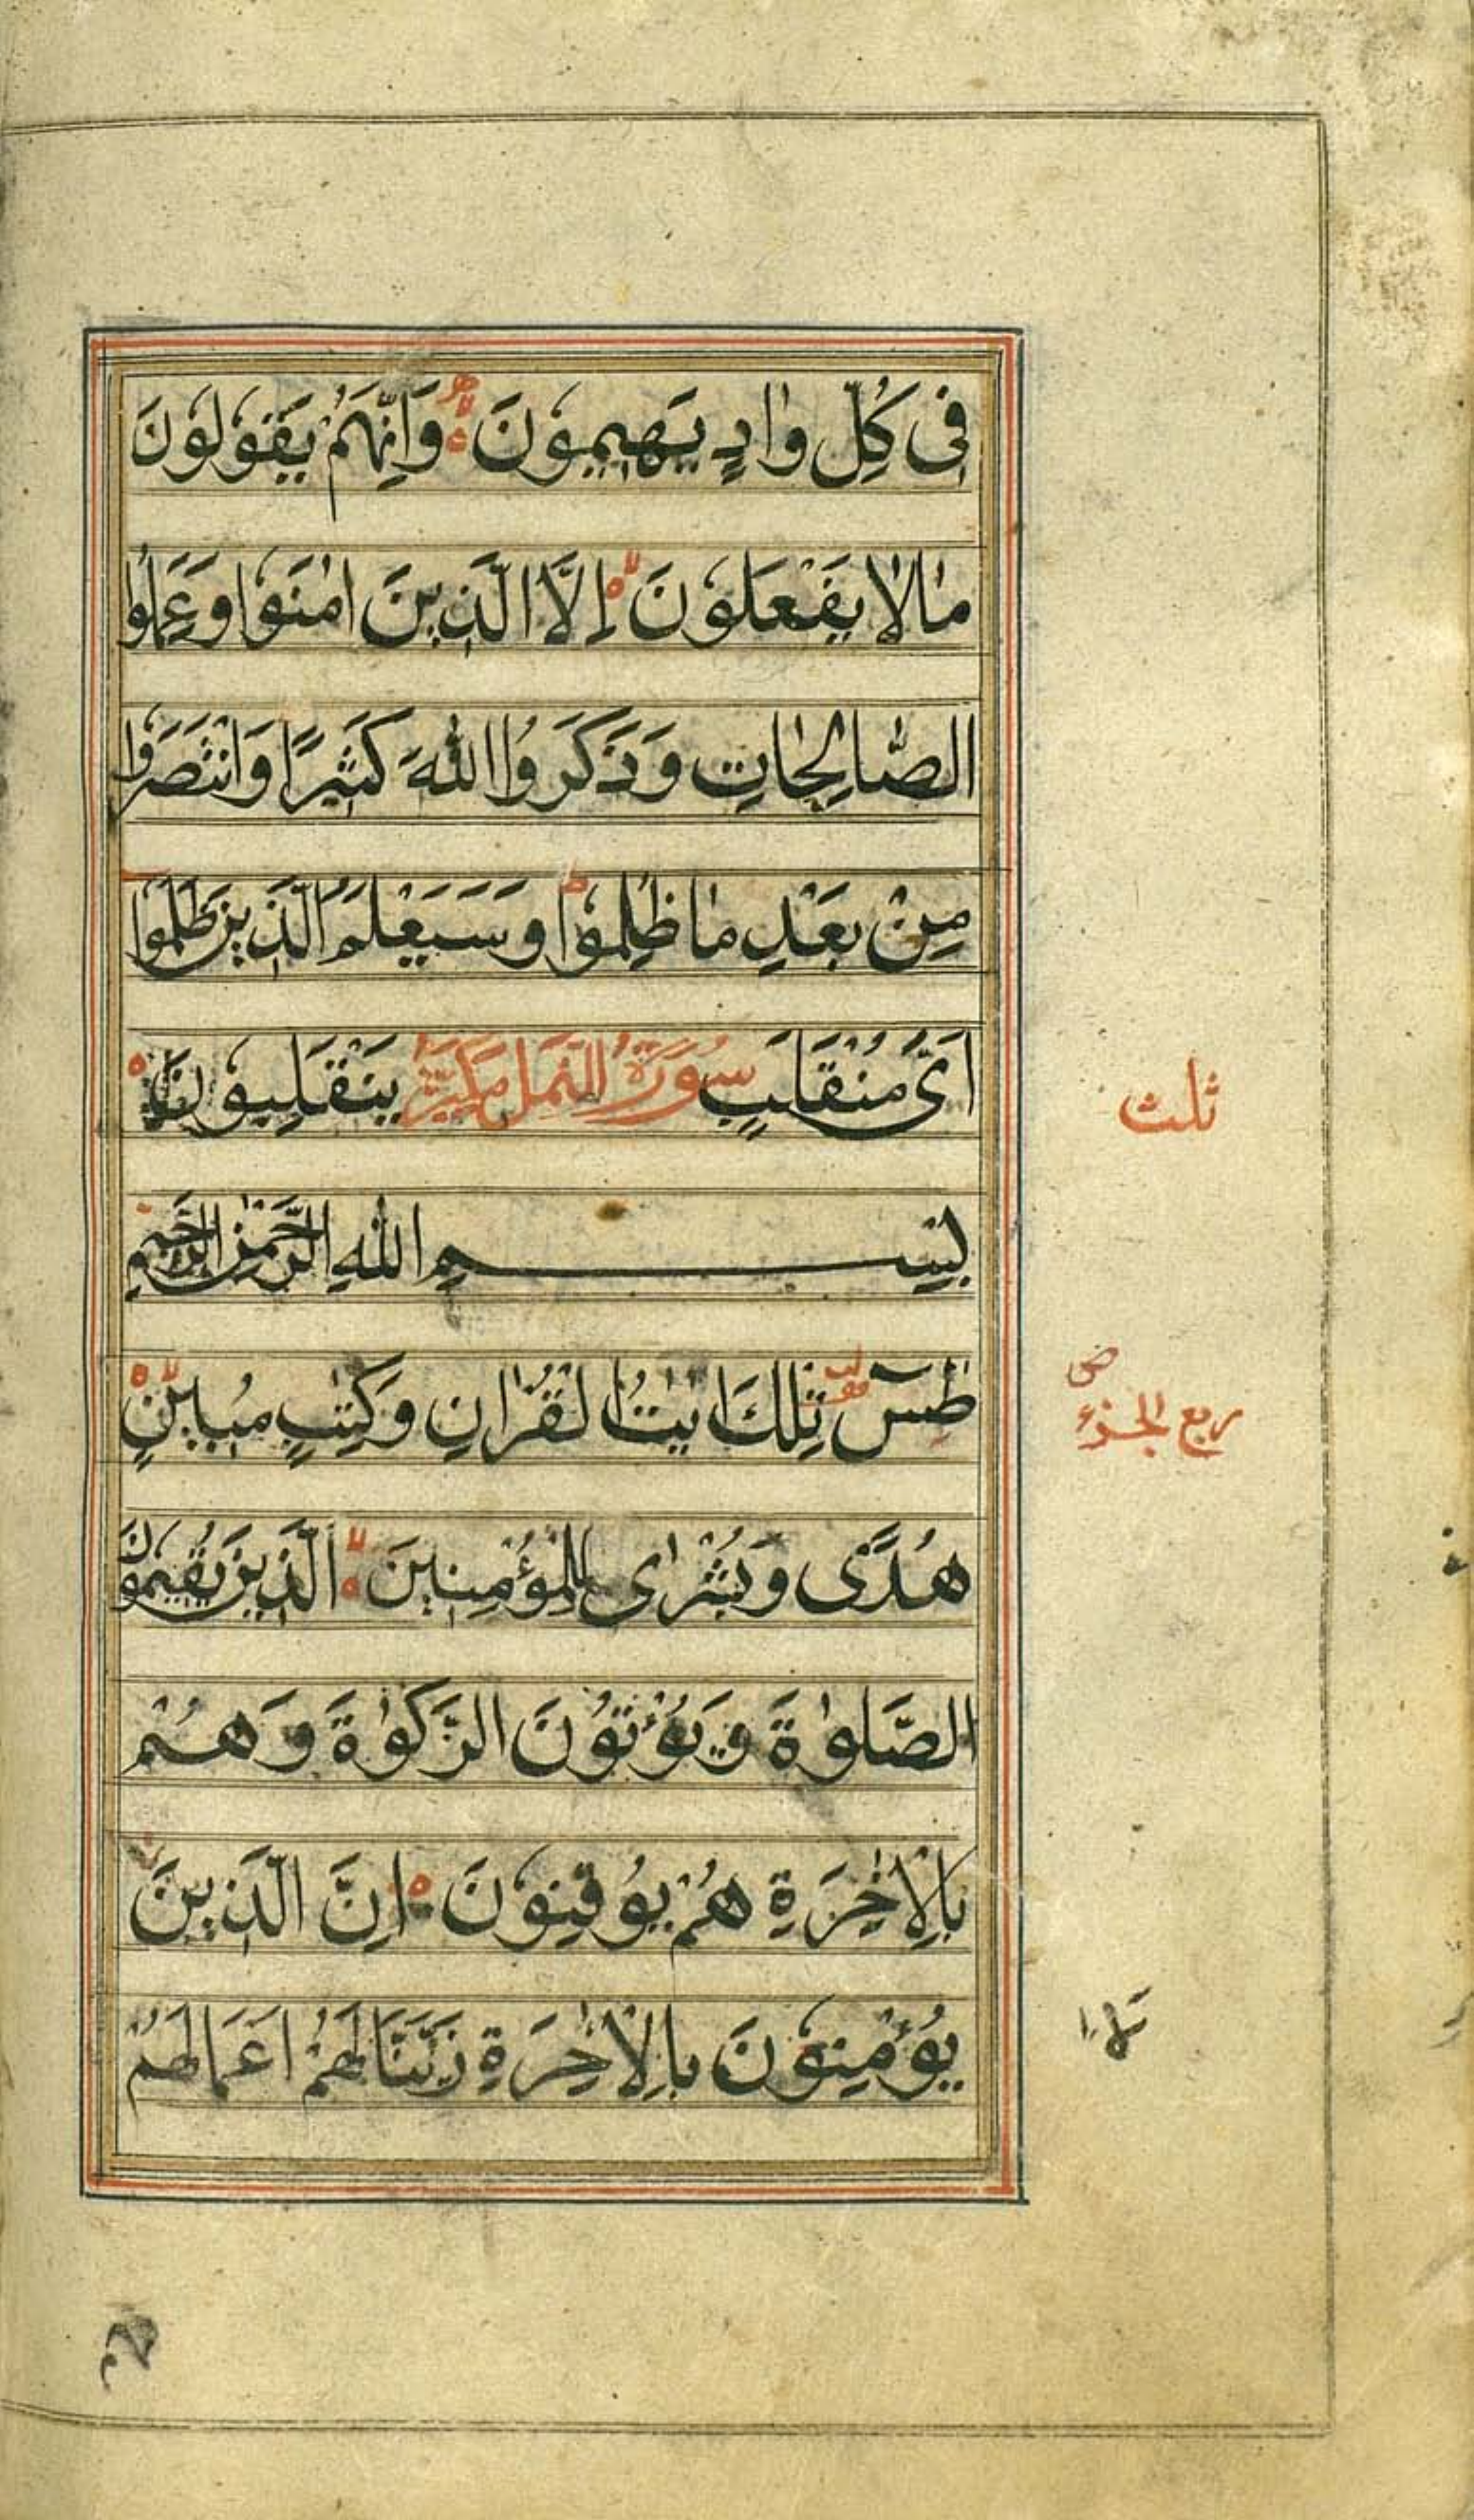 فِى كُلِّ وَادٍ يَهِيمُونَ لا وَاَنَّهُمْ يَقُولُونَ
مَالَا يَفْعَلُونَ لا اِلَّا الَّذِينَ اٰمَنُوا وَعَمِلُوا
الصَّالِحَاتِ وَذَكَرُوا اللّٰهَ كَثِيرًا وَانْتَصَرُوا
مِنْ بَعْدِ مَا ظُلِمُوا ط وَسَيَعْلَمُ الَّذِينَ ظَلَمُوا
اَىَّ مُنْقَلَبٍ سُورَةُ النَّمل مَكِّيَّة يَنْقَلِبُونَ
بِسْمِ اللّٰهِ الرَّحْمٰنِ الرَّحِيمِ
طٰسٓ تِلْكَ اٰيٰتُ الْقُرْاٰنِ وَكِتٰبٍ مُبِينٍ لا
هُدًى وَبُشْرٰى لِلْمُؤْمِنِينَ لا الَّذِينَ يُقِيمُونَ
الصَّلوٰةَ وَيُؤْتُونَ الزَّكوٰةَ وَهُمْ
بِالْاٰخِرَةِ هُمْ يُوقِنُونَ اِنَّ الَّذِينَ
يُؤْمِنُونَ بِالْاٰخِرَةِ زَيَّنَّا لَهُمْ اَعْمَالَهُمْ
ثلث
ربع الجزء